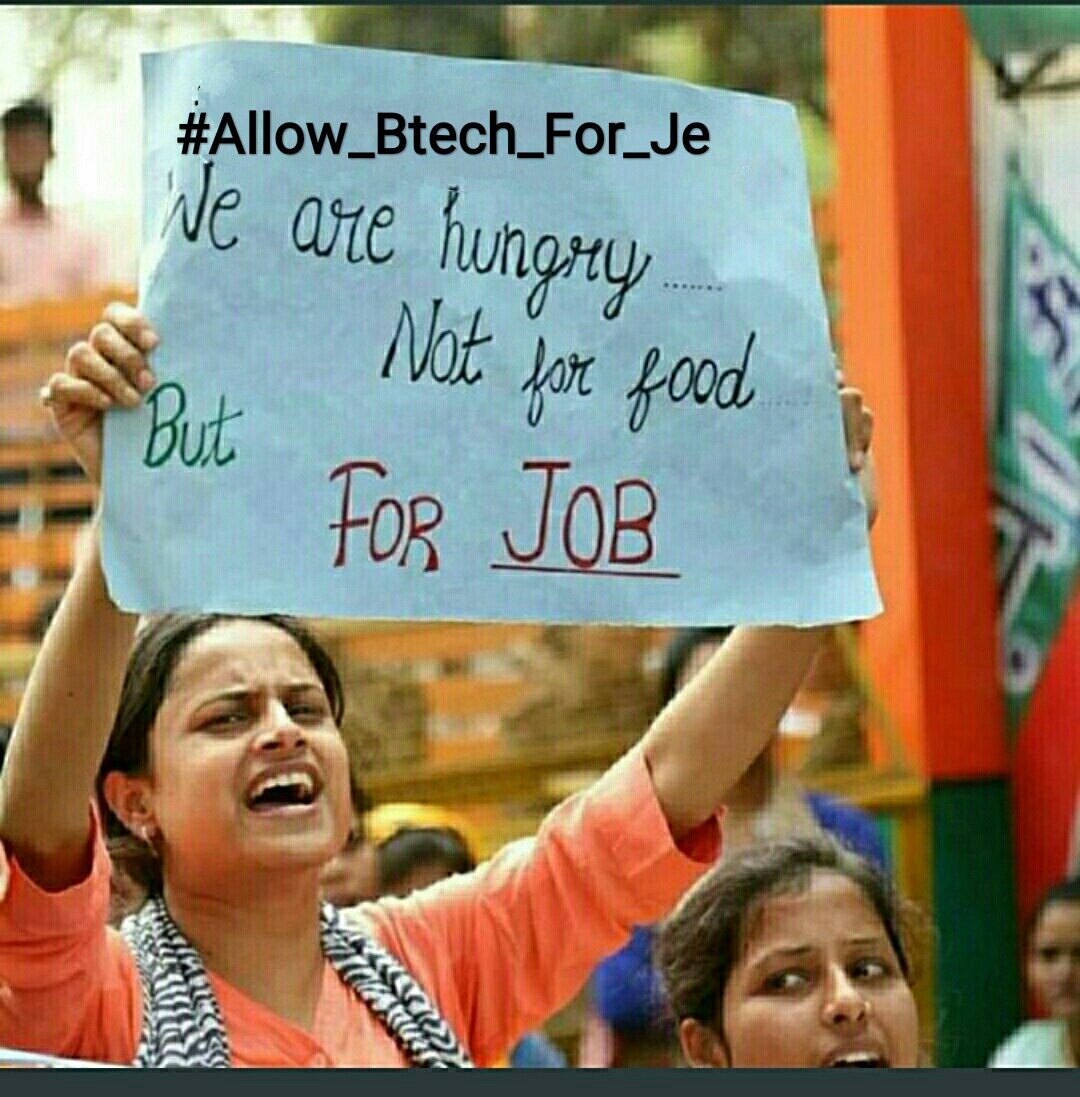 #Allow_Btech_For_Je
We are hungry......
Not for food......
But
FOR JOB